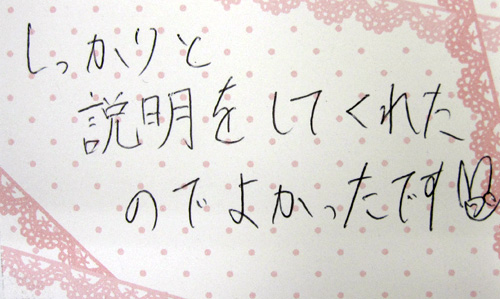 しっかりと
説明をしてくれた
のでよかったです